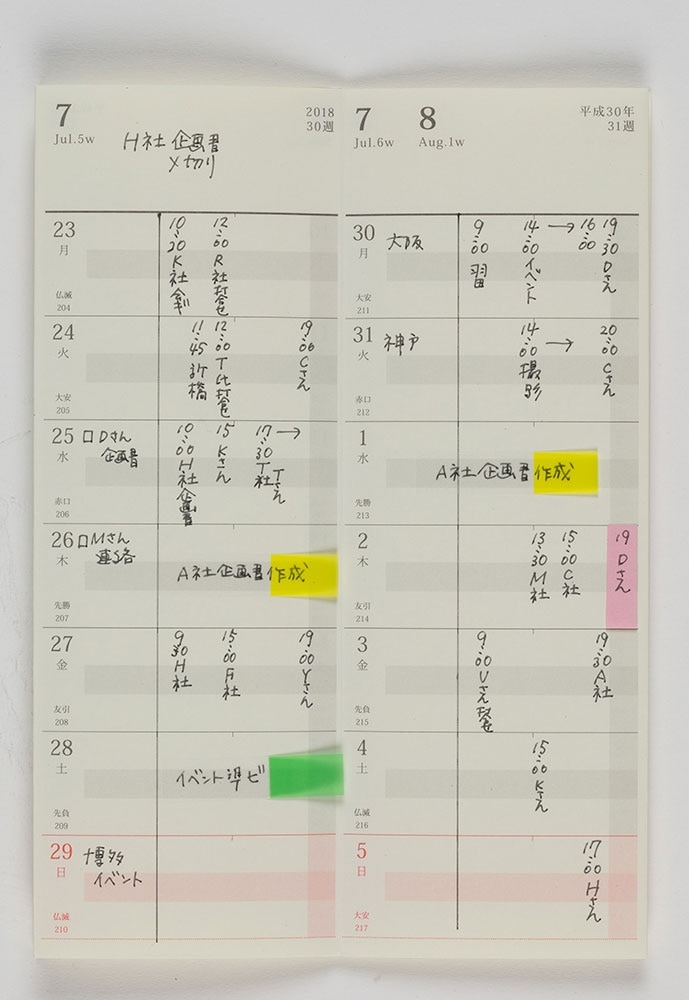 7
Jul.5w
H社 企画書
〆切り
2018
30週
23
月
仏滅
204
10:20 K社
12:00 R社打合せ
24
火
大安
205
11:45
12:00 T社打合せ
19:00 Cさん
25
水
赤口
206
□Dさん
企画書
10:00 H社企画書
15 Kさん
17:30 T社 Tさん →
26
木
先勝
207
□Mさん
連絡
A社企画書作成
27
金
友引
208
9:30 H社
15:00 F社
19:00 Yさん
28
土
先負
209
イベント準ビ
29
日
仏滅
210
博多
イベント
7
Jul.6w
8
Aug.1w
平成30年
31週
30
月
大安
211
大阪
9:00
14:00 イベント → 16:00
19:30 Dさん
31
火
赤口
212
神戸
14:00 撮影 →
20:00 Cさん
1
水
先勝
213
A社企画書作成
2
木
友引
214
13:30 M社
15:00 C社
19 Dさん
3
金
先負
215
9:00 Uさん
19:30 A社
4
土
仏滅
216
15:00 Kさん
5
日
大安
217
17:00 Hさん